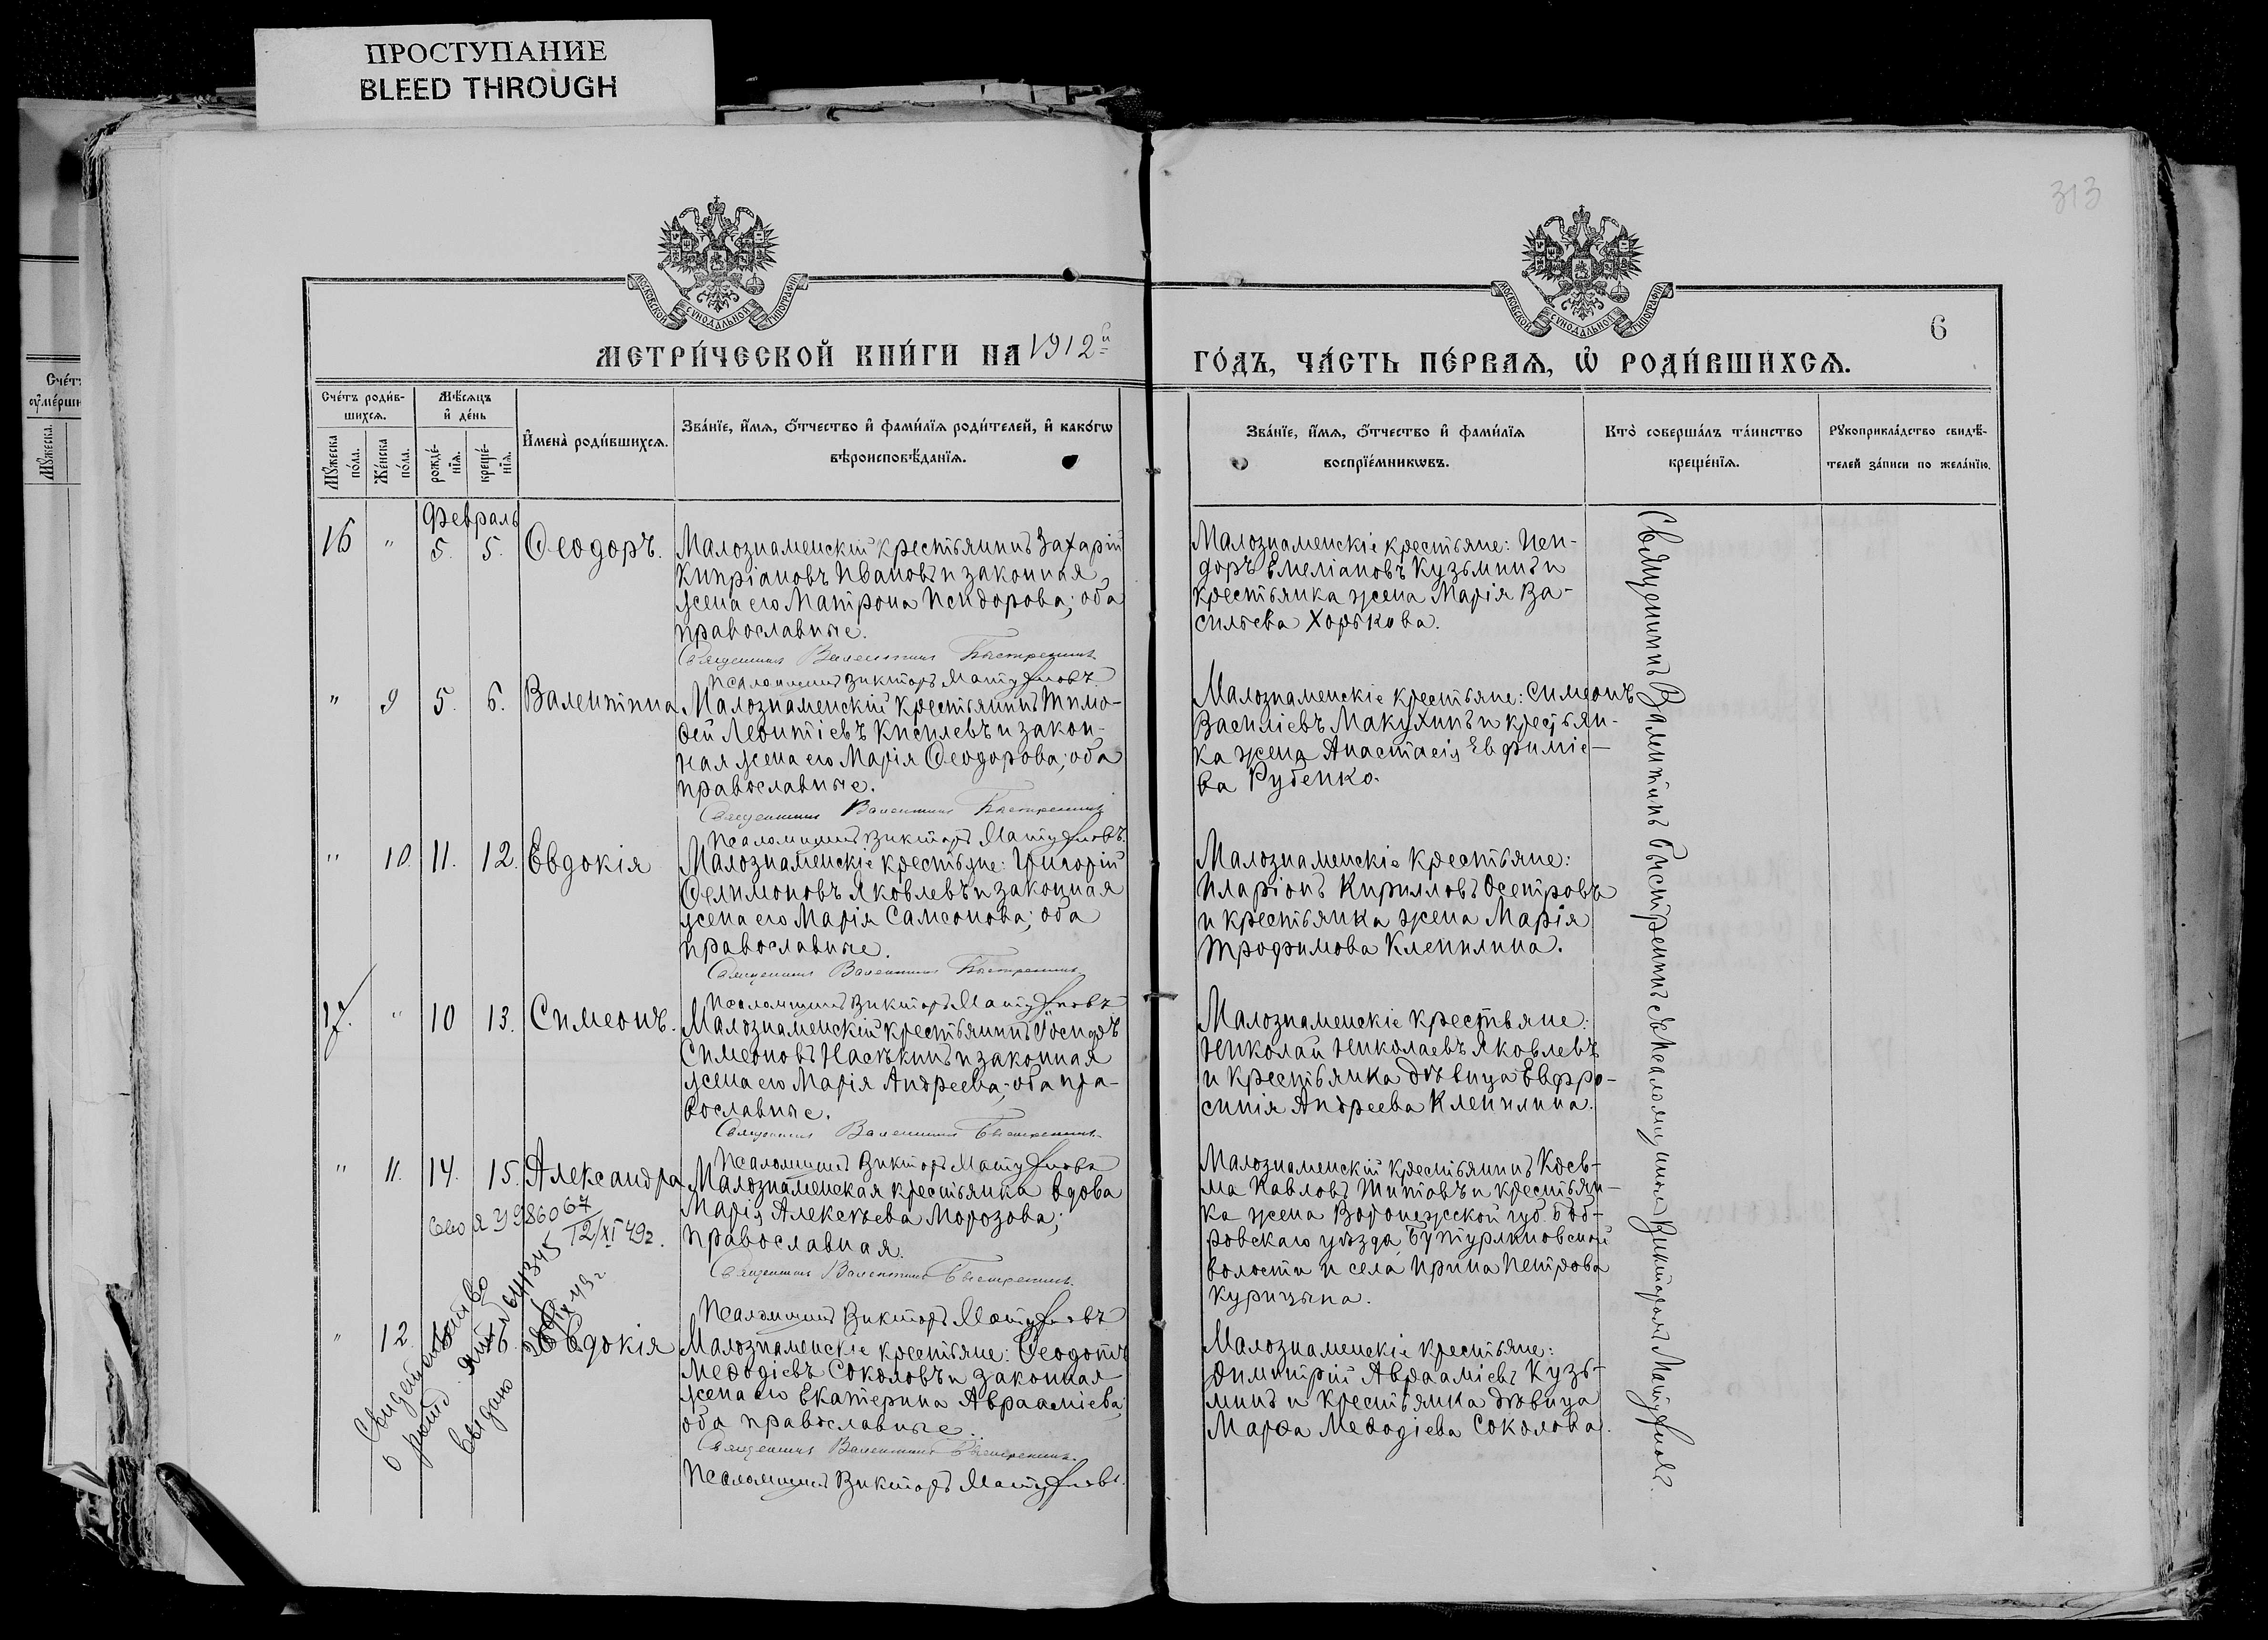 ПРОСТУПАНИЕ
BLEED THROUGH
313
МОСКОВСКОЙ СѴНОДАЛЬНОЙ ТИПОГРАФІИ
МОСКОВСКОЙ СѴНОДАЛЬНОЙ ТИПОГРАФІИ
6
МЕТРИ́ЧЕСКОЙ КНИ́ГИ НА 1912й
ГО́ДЪ, ЧА́СТЬ ПЕ́РВАѦ, Ѡ҆ РОДИ́ВШИХСѦ.
Сче́тъ роди́в-
шихсѧ.
Мѣ́сѧцъ
и҆ де́нь
Мꙋ́жеска
по́ла.
Же́нска
по́ла.
рожде́-
нїѧ.
креще́-
нїѧ.
И҆мена̀ роди́вшихсѧ.
Зва́нїе, и҆́мѧ, ѻ҆́тчество и҆ фами́лїѧ роди́телей, и҆ како́гѡ
вѣроисповѣ́данїѧ.
Зва́нїе, и҆́мѧ, ѻ҆́тчество и҆ фами́лїѧ
воспрїе́мникѡвъ.
Кто̀ соверша́лъ та́инство
креще́нїѧ.
Рꙋкоприкла́дство свидѣ́-
телей за́писи по жела́нїю.
Сче́тъ
ᲂу҆ме́рши
Мꙋ́жеска
Февраль
16 " 5. 5. Ѳеодоръ.
Малознаменскій крестьянинъ Захарій
Кипріановъ Ивановъ и законная
жена его Матрона Исидорова; оба
православные.
Священникъ Валентинъ Быстренинъ
Псаломщикъ Викторъ Матуфновъ
Малознаменскіе крестьяне: Иси-
доръ Емеліановъ Кузьминъ и
крестьянка жена Марія Ва-
сильева Хорькова.
" 9 5. 6. Валентина
Малознаменскій крестьянинъ Тимо-
ѳей Леонтіевъ Киселевъ и закон-
ная жена его Марія Ѳеодорова; оба
православные.
Священникъ Валентинъ Быстренинъ
Псаломщикъ Викторъ Матуфновъ
Малознаменскіе крестьяне: Симеонъ
Василіевъ Макухинъ и крестьян-
ка жена Анастасія Евфиміе-
ва Рубенко.
" 10. 11. 12. Евдокія
Малознаменскіе крестьяне: Григорій
Филимоновъ Яковлевъ и законная
жена его Марія Самсонова; оба
православные.
Священникъ Валентинъ Быстренинъ
Псаломщикъ Викторъ Матуфновъ
Малознаменскіе крестьяне:
Иларіонъ Кирилловъ Осетровъ
и крестьянка жена Марія
Трофимова Клепилина.
17. " 10 13. Симеонъ.
Малознаменскій крестьянинъ Іосифъ
Симеоновъ Насѣкинъ и законная
жена его Марія Андреева; оба пра-
вославные.
Священникъ Валентинъ Быстренинъ
Псаломщикъ Викторъ Матуфновъ
Малознаменскіе крестьяне:
Николай Николаевъ Яковлевъ
и крестьянка дѣвица Евфро-
синія Андреева Клепилина.
" 11. 14. 15. Александра
Малознаменская крестьянка вдова
Марія Алексѣева Морозова;
православная.
Священникъ Валентинъ Быстренинъ
Псаломщикъ Викторъ Матуфновъ
Малознаменскій крестьянинъ Кось-
ма Павловъ Титовъ и крестьян-
ка жена Воронежской губ. Боб-
ровскаго уѣзда, Бутурлиновской
волости и села Ирина Петрова
Курицына.
12/XI 49г.
Свидетельство
о рожд.
выдано
" 12. Евдокія
Малознаменскіе крестьяне: Ѳеодотъ
Меѳодіевъ Соколовъ и законная
жена его Екатерина Авраамiева;
оба православные.
Священникъ Валентинъ Быстренинъ
Псаломщикъ Викторъ Матуфновъ.
Малознаменскіе крестьяне:
Димитрій Авраамiевъ Кузь-
минъ и крестьянка дѣвица
Марѳа Меѳодіева Соколова.
Священникъ Валентинъ Быстренинъ съ псаломщикомъ Викторомъ Матуфновъ.